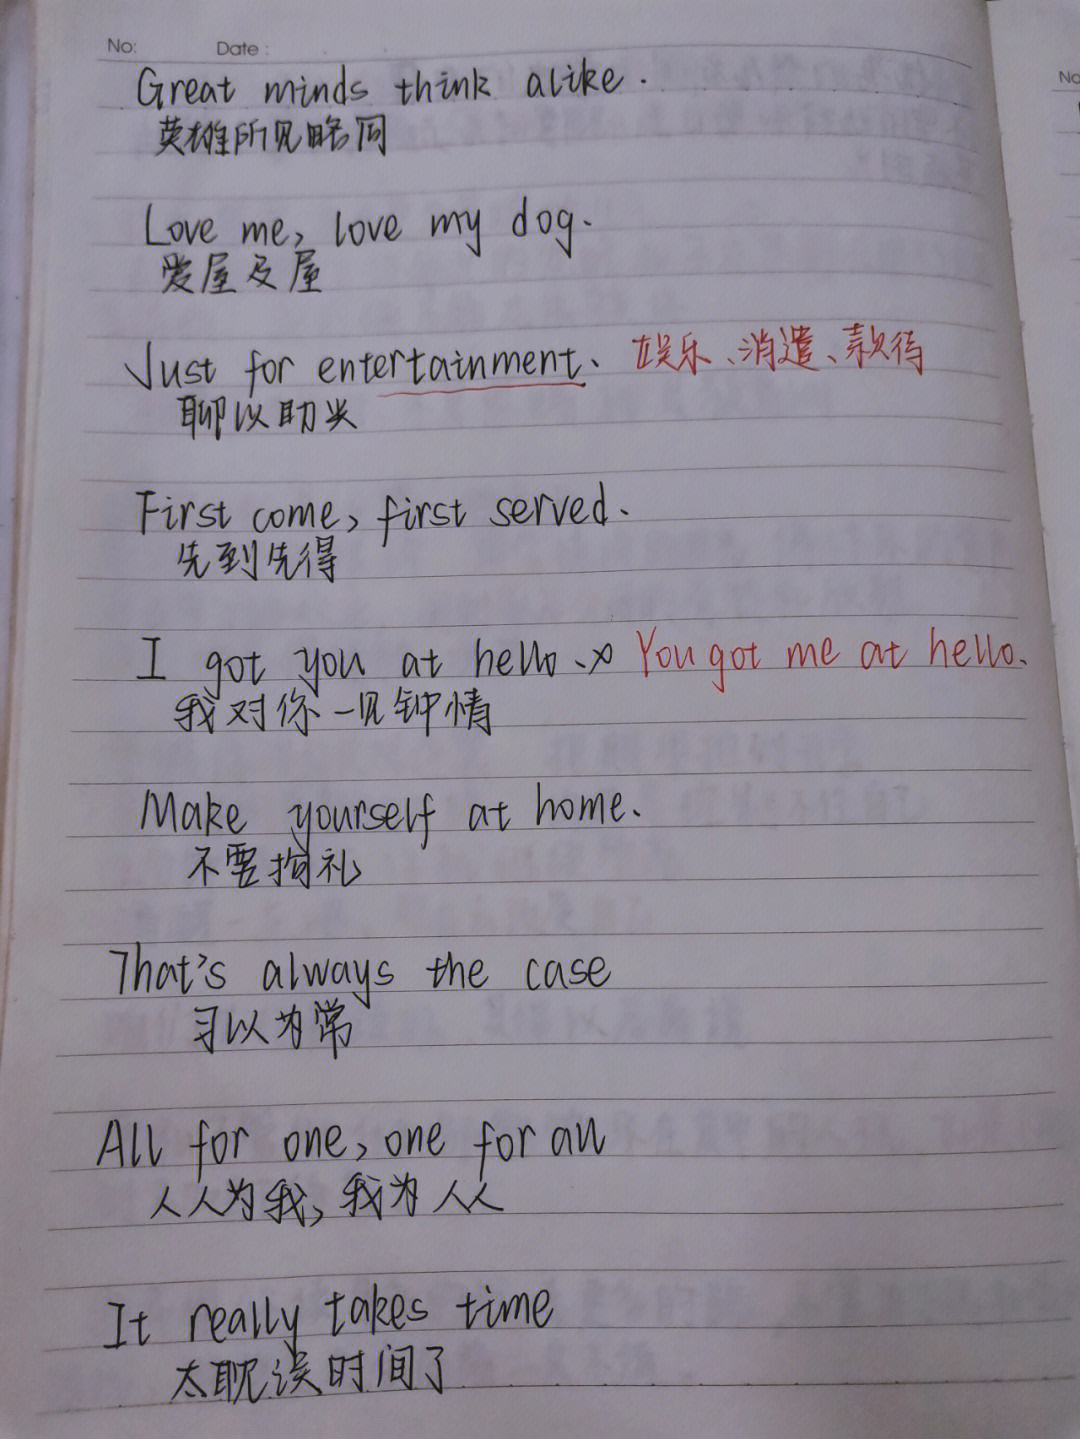 No: Date:
Great minds think alike.
英雄所见略同
Love me, love my dog.
爱屋及屋
Just for entertainment、 娱乐、消遣、款待
聊以助兴
First come, first served.
先到先得
I got you at hello. × You got me at hello.
我对你一见钟情
Make yourself at home.
不要拘礼
That's always the case
习以为常
All for one, one for all
人人为我, 我为人人
It really takes time
太耽误时间了